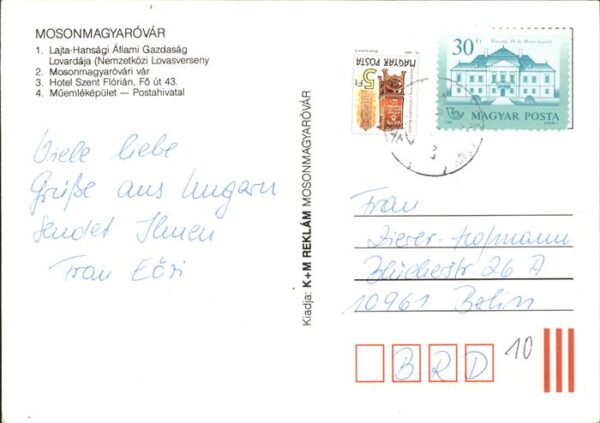 MOSONMAGYARÓVÁR
1. Lajta-Hansági Állami Gazdaság
Lovardája (Nemzetközi Lovasverseny
2. Mosonmagyaróvári vár
3. Hotel Szent Flórián, Fő út 43.
4. Műemléképület — Postahivatal
5 Ft
MAGYAR POSTA
30 Ft
MAGYAR POSTA
Viele liebe
Grüße aus Ungarn
sendet Ihnen
Frau Eőri
Kiadja: K+M REKLÁM MOSONMAGYARÓVÁR
Frau
Zierer-Hofmann
Blücherstr 26 A
10961 Berlin
BRD
10